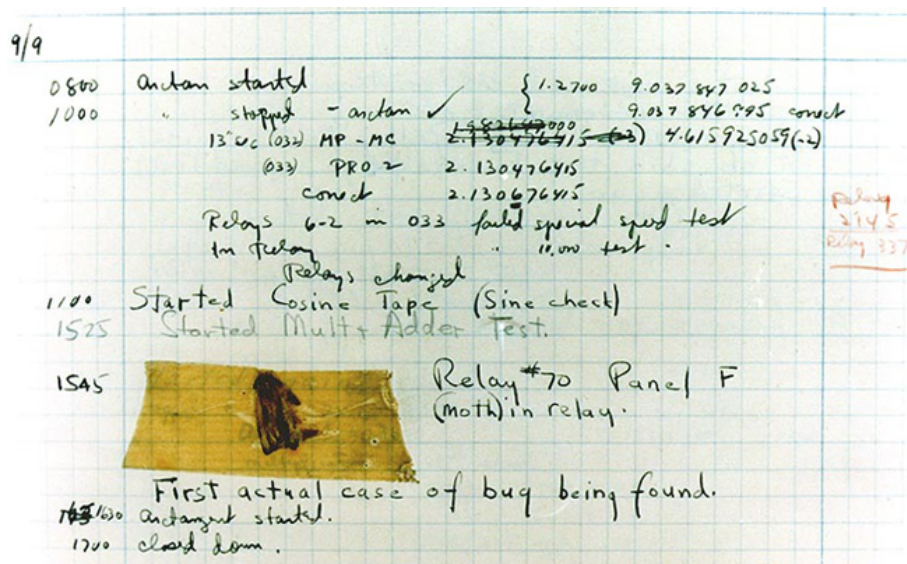 9/9
0800 arctan started { 1.2700 9.037 847 025
1000 " stopped - arctan ✓ 9.037 846 795 correct
13"uc (032) MP - MC 2.130476415 (-3) 4.615925059(-2)
(033) PRO 2 2.130476415
correct 2.130676415
Relays 6-2 in 033 failed special speed test
in relay " 10,000 test .
Relays changed
Relay
2145
Relay 337
1100 Started Cosine Tape (Sine check)
1525 Started Mult + Adder Test.
1545 Relay #70 Panel F
(moth) in relay.
First actual case of bug being found.
1630 arctangent started.
1700 closed down.